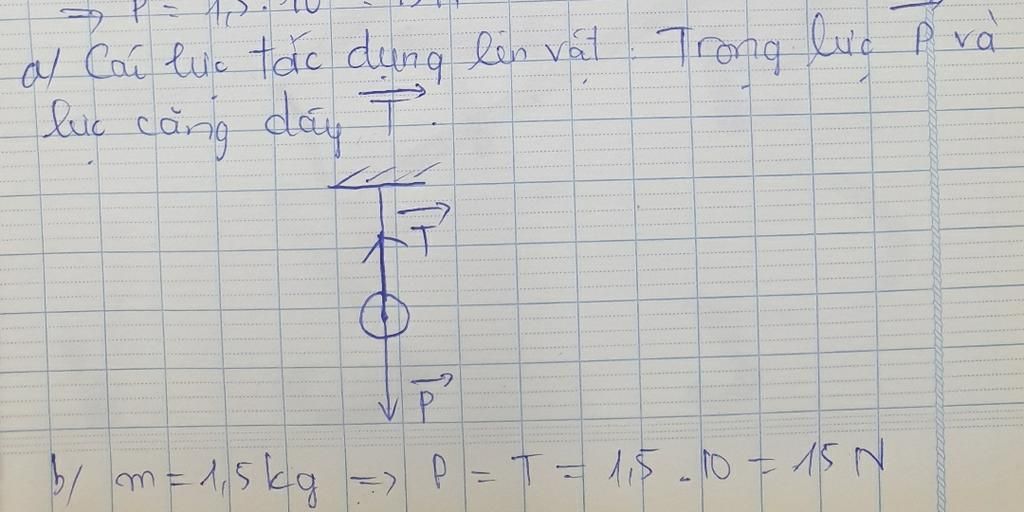 => P = 1,5 . 10 =
a/ Các lực tác dụng lên vật: Trọng lực P và
lực căng dây T.
T
P
b/ m = 1,5 kg => P = T = 1,5 . 10 = 15 N